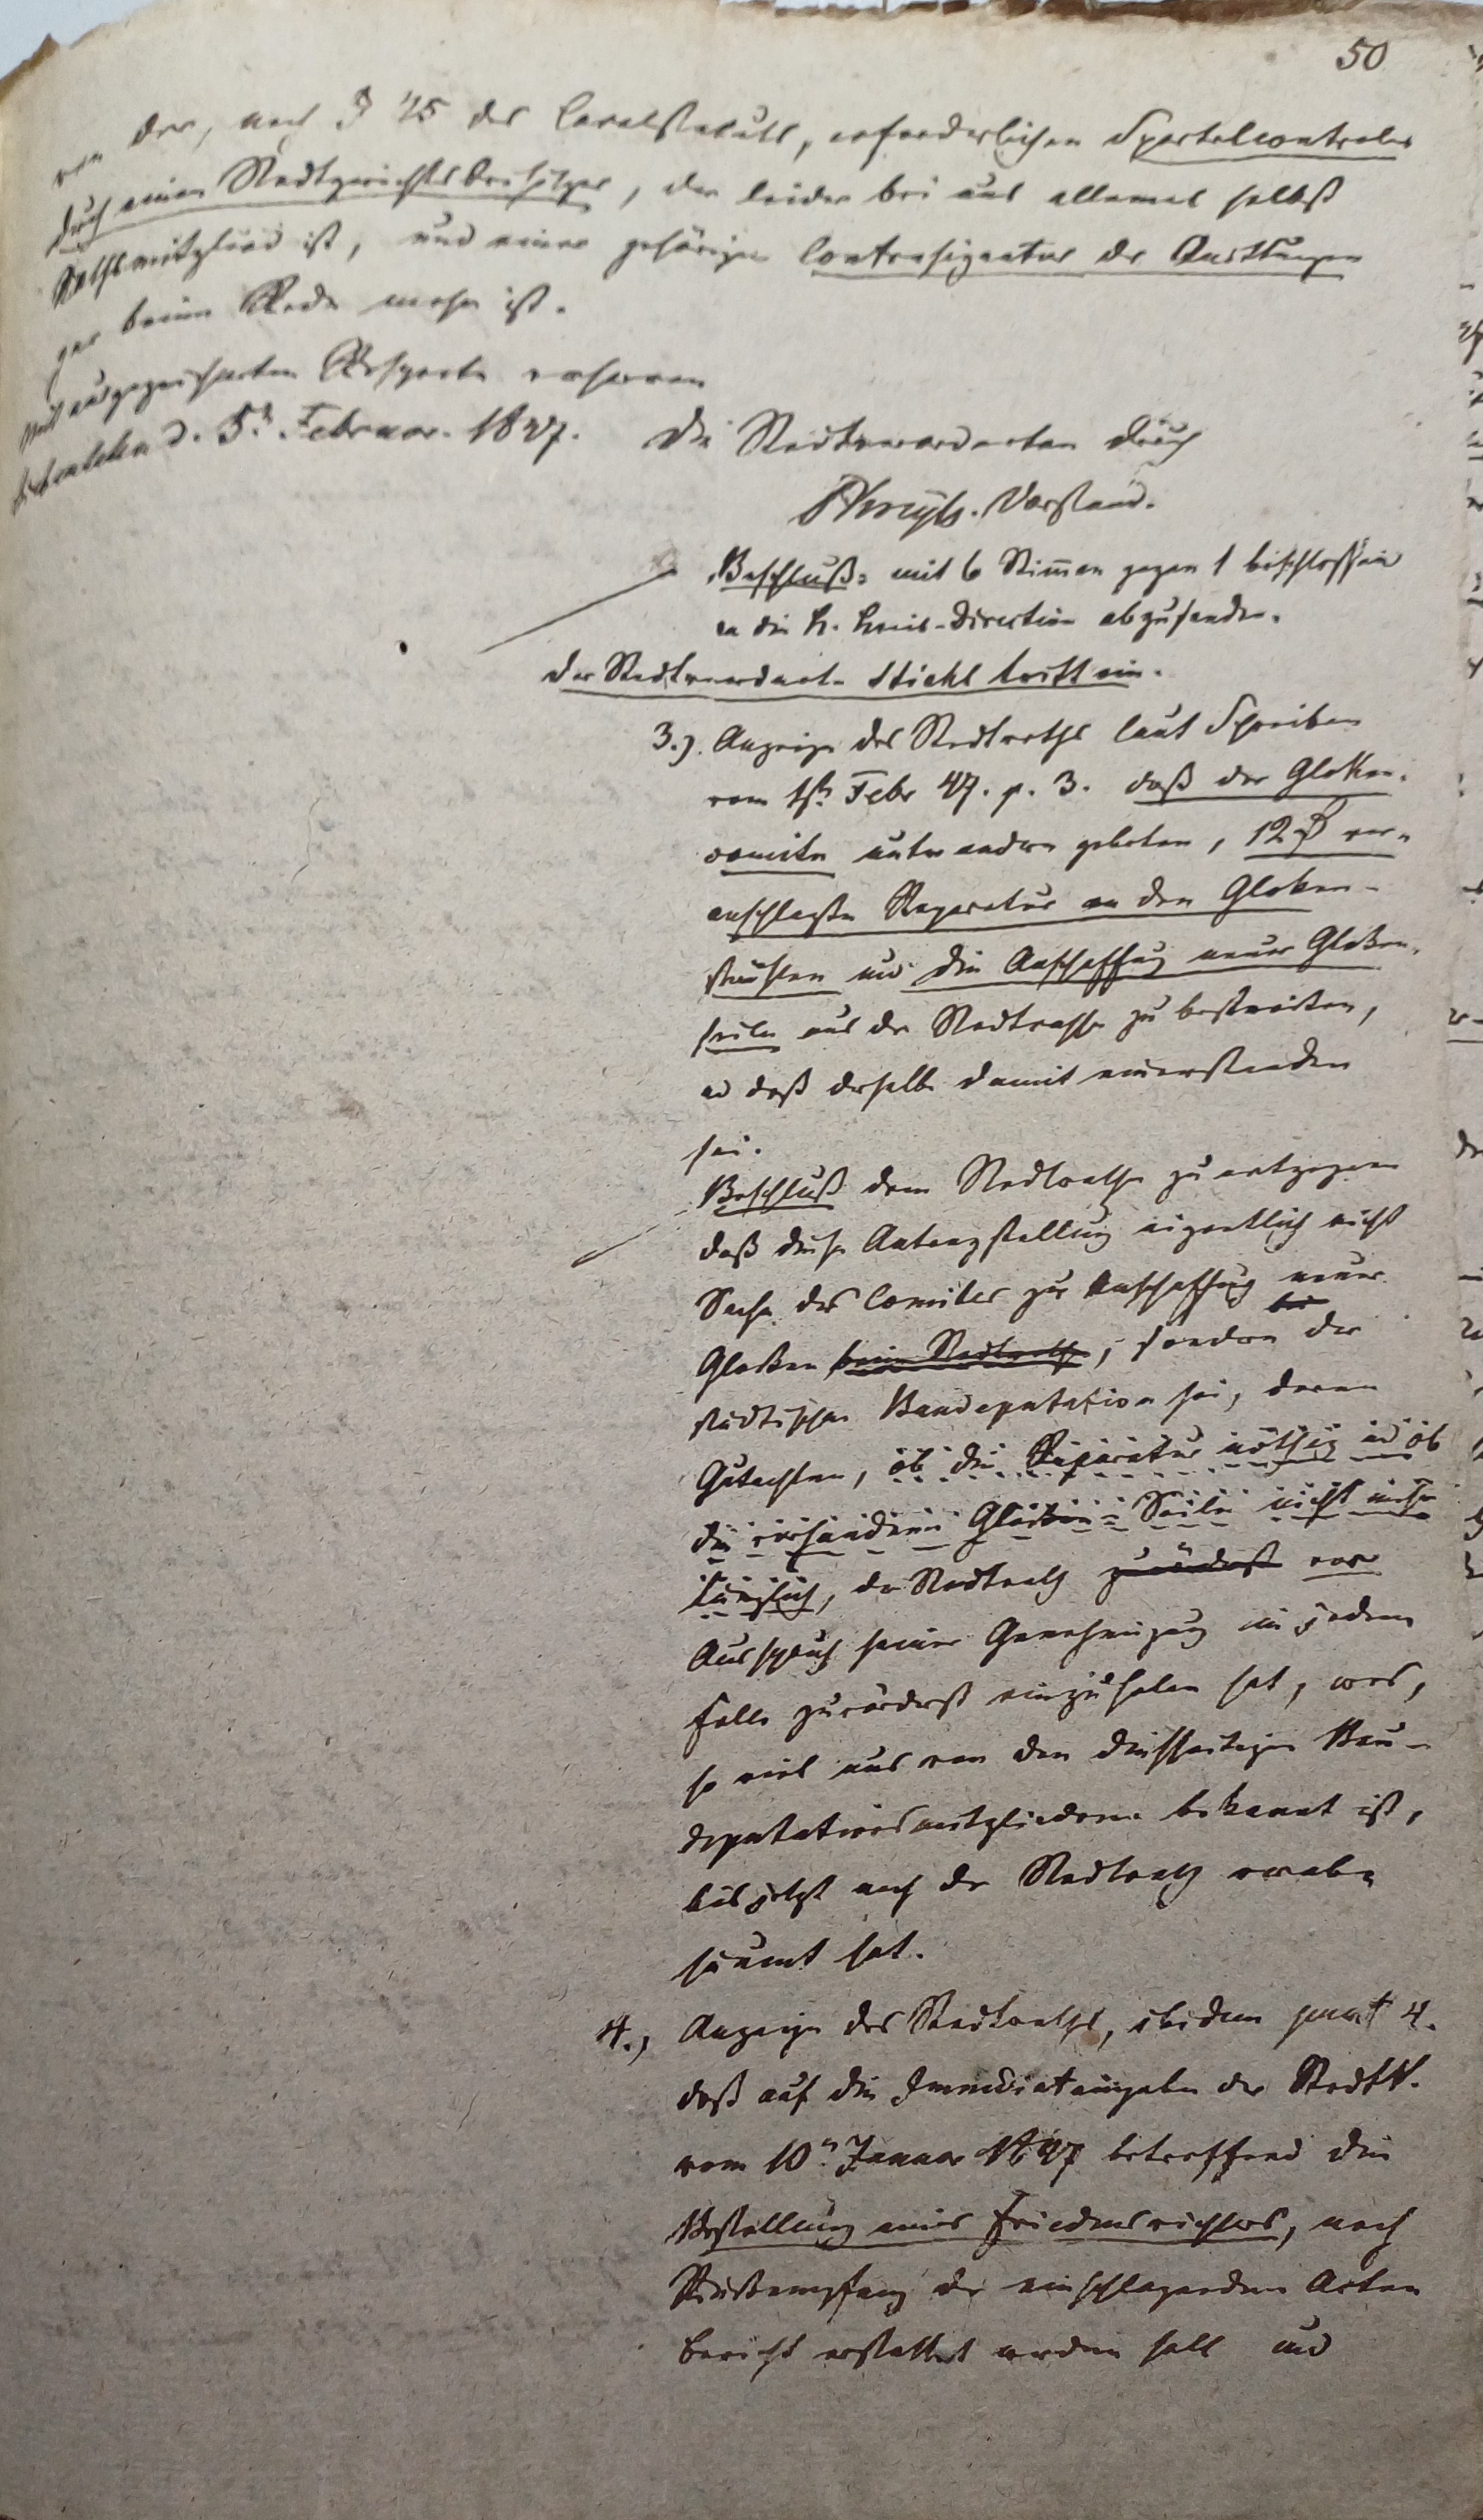 50
von der, nach § 25 des Localstatuts, erforderlichen Sportelcontrole
durch einen Stadtgerichtsbeisitzer, der leider bei uns allemal selbst
Rathsmitglied ist, und einer gehörigen Contrasignatur der Quittungen
gar keine Rede mehr ist.
Mit ausgezeichneten Respecte verharren
d. 5n. Februar. 1847.
Die Stadtverordneten durch
Vorstand.
Beschluß: mit 6 Stimmen gegen 1 beschlossen
an die h. Kreis-Direction abzusenden.
der Stadtverordnete Diehl tritt ein.
3.). Anzeige des Stadtraths laut Schreiben
vom 1st Febr 47. p. 3. daß der Glocken-
comite unter andern gebeten, 12 rf ver-
anschlagte Reparatur an den Glocken-
stühlen und die Anschaffung neuer Glocken-
seile aus der Stadtcasse zu bestreiten,
und daß derselbe damit einverstanden
sei.
Beschluß dem Stadtrathe zu entgegnen
daß diese Antragstellung eigentlich nicht
Sache des Comites zur Anschaffung neuer
bei
Glocken beim Stadtrathe, sondern der
städtischen Baudeputation sei, deren
Gutachten, ob die Reparatur nöthig und ob
die vorhandenen Glocken-Seile nicht mehr
tauglich, der Stadtrath zunächst vor
Ausspruch seiner Genehmigung in jedem
Falle zuvörderst einzuholen hat, was,
so viel uns von den diesseitigen Bau-
deputationsmitgliedern bekannt ist,
bis jetzt noch der Stadtrath verab-
säumt hat.
4.) Anzeige des Stadtraths, ibidem punct 4.
daß auf die Immediateingabe der Stadtv.
vom 10n Januar 1847 betreffend die
Bestellung eines Friedensrichters, nach
Rückempfang der einschlagenden Acten
Bericht erstattet werden soll und